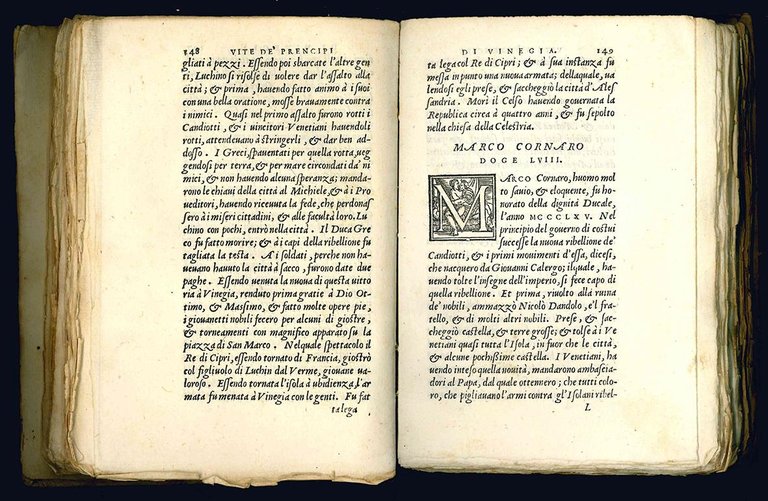 148 VITE DE' PRENCIPI
gliati à pezzi. Essendo poi sbarcate l'altre gen
ti, Luchino si risolse di uolere dar l'assalto alla
città; & prima, hauendo fatto animo à i suoi
con una bella oratione, mosse brauamente contra
i nimici. Quasi nel primo assalto furono rotti i
Candiotti, & i uincitori Venetiani hauendoli
rotti, attendeuano à stringerli, & dar ben ad-
dosso. I Greci, spauentati per quella rotta, ueg
gendosi per terra, & per mare circondati da' ni
mici, & non hauendo alcuna speranza; manda-
rono le chiaui della città al Michiele, & à i Pro
ueditori, hauendo riceuuta la fede, che perdonas
sero à i miseri cittadini, & alle facultà loro. Lu
chino con pochi, entrò nella città. Il Duca Gre
co fu fatto morire; & à i capi della ribellione fu
tagliata la testa. A i soldati, perche non ha-
ueuano hauuto la città à sacco, furono date due
paghe. Essendo uenuta la nuoua di questa uitto
ria à Vinegia, renduto prima gratie à Dio Ot-
timo, & Massimo, & fatto molte opere pie,
i giouanetti nobili fecero per alcuni dì giostre,
& torneamenti con magnifico apparato su la
piazza di San Marco. Nelquale spettacolo il
Re di Cipri, essendo tornato di Francia, giostrò
col figliuolo di Luchin dal Verme, giouane ua-
loroso. Essendo tornata l'isola à ubidienza, l'ar
mata fu menata à Vinegia con le genti. Fu fat
ta lega
DI VINEGIA. 149
ta lega col Re di Cipri; & à sua instanza fu
messa in punto una nuoua armata; dellaquale, ua
lendosi egli prese, & saccheggiò la città d'Ales
sandria. Morì il Celso hauendo gouernata la
Republica circa à quattro anni, & fu sepolto
nella chiesa della Celestria.
MARCO CORNARO
DOGE LVIII.
MARCO Cornaro, huomo mol
to sauio, & eloquente, fu ho-
norato della dignità Ducale,
l'anno MCCCLXV. Nel
principio del gouerno di costui
successe la nuoua ribellione de'
Candiotti, & i primi mouimenti d'essa, dicesi,
che nacquero da Giouanni Calergo; ilquale, ha-
uendo tolte l'insegne dell'imperio, si fece capo di
quella ribellione. Et prima, riuolto alla ruina
de' nobili, ammazzò Nicolò Dandolo, e'l fra-
tello, & di molti altri nobili. Prese, & sac-
cheggiò castella, & terre grosse; & tolse à i Ve
netiani quasi tutta l'Isola, in fuor che le città,
& alcune pochissime castella. I Venetiani, ha
uendo inteso quella nouità, mandarono ambascia-
dori al Papa, dal quale ottennero; che tutti colo-
ro, che pigliauano l'armi contra gl'Isolani ribel-
L